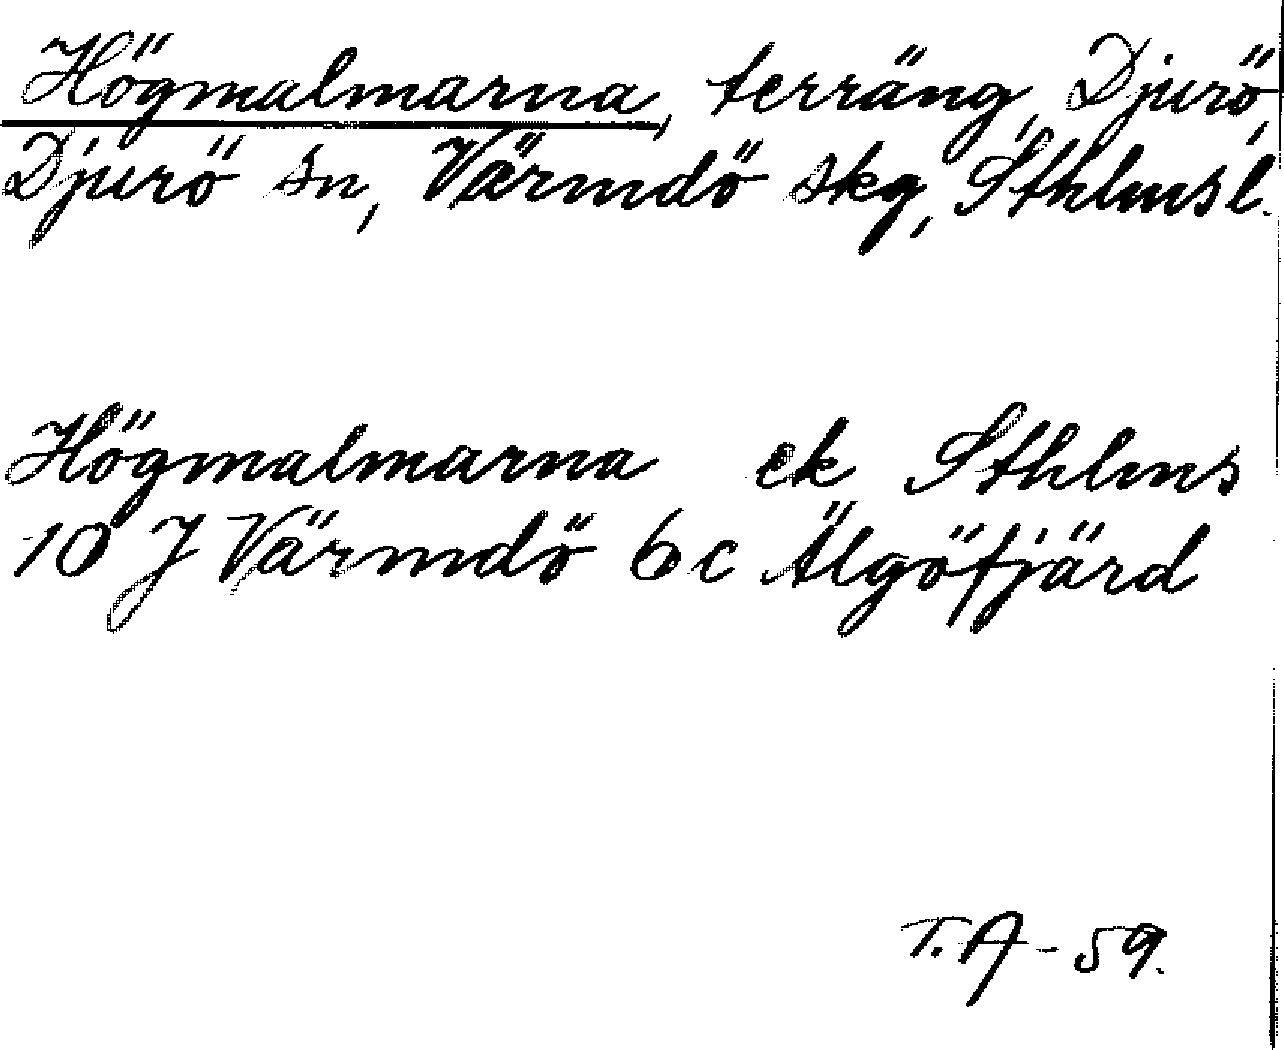 Högmalmarna, terräng, Djurö,
Djurö sn, Värmdö skg, Sthlmsl.
Högmalmarna ek Sthlms
10 J Värmdö 6c Älgöfjärd
T.A-59.